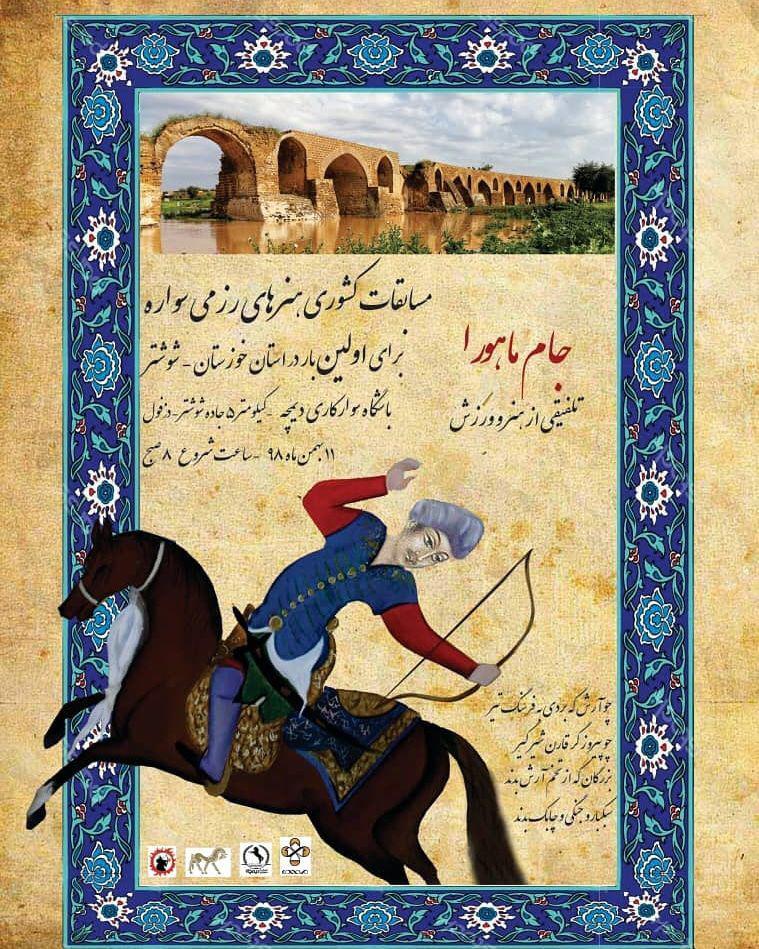 مسابقات کشوری هنرهای رزمی سواره
برای اولین بار در استان خوزستان - شوشتر
باشگاه سوارکاری دیمچه - کیلومتر ۵ جاده شوشتر - دزفول
۱۱ بهمن ماه ۹۸ - ساعت شروع ۸ صبح
جام ماهورا
تلفیقی از هنر و ورزش
چو آرش که بردی به فرسنگ تیر
چو پیروزگر قارن شیرگیر
بزرگان که از تخم آرش بدند
سبکبار و جنگی و چابک بدند